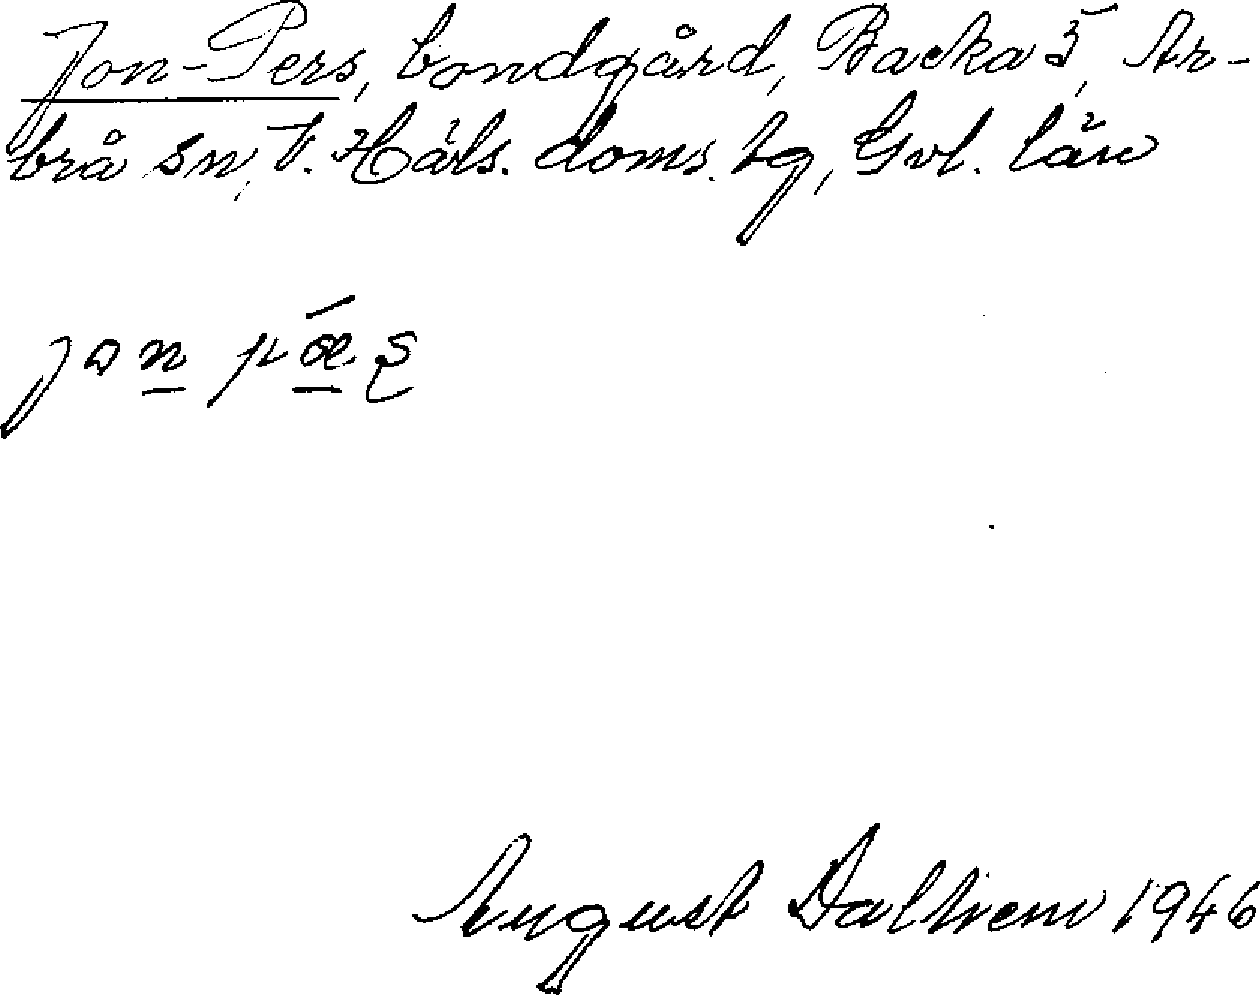 Jon-Pers, bondgård, Backa 3, Ar-
brå sn, V. Häls. doms. tg, Gvl. län
August Dalhem 1946